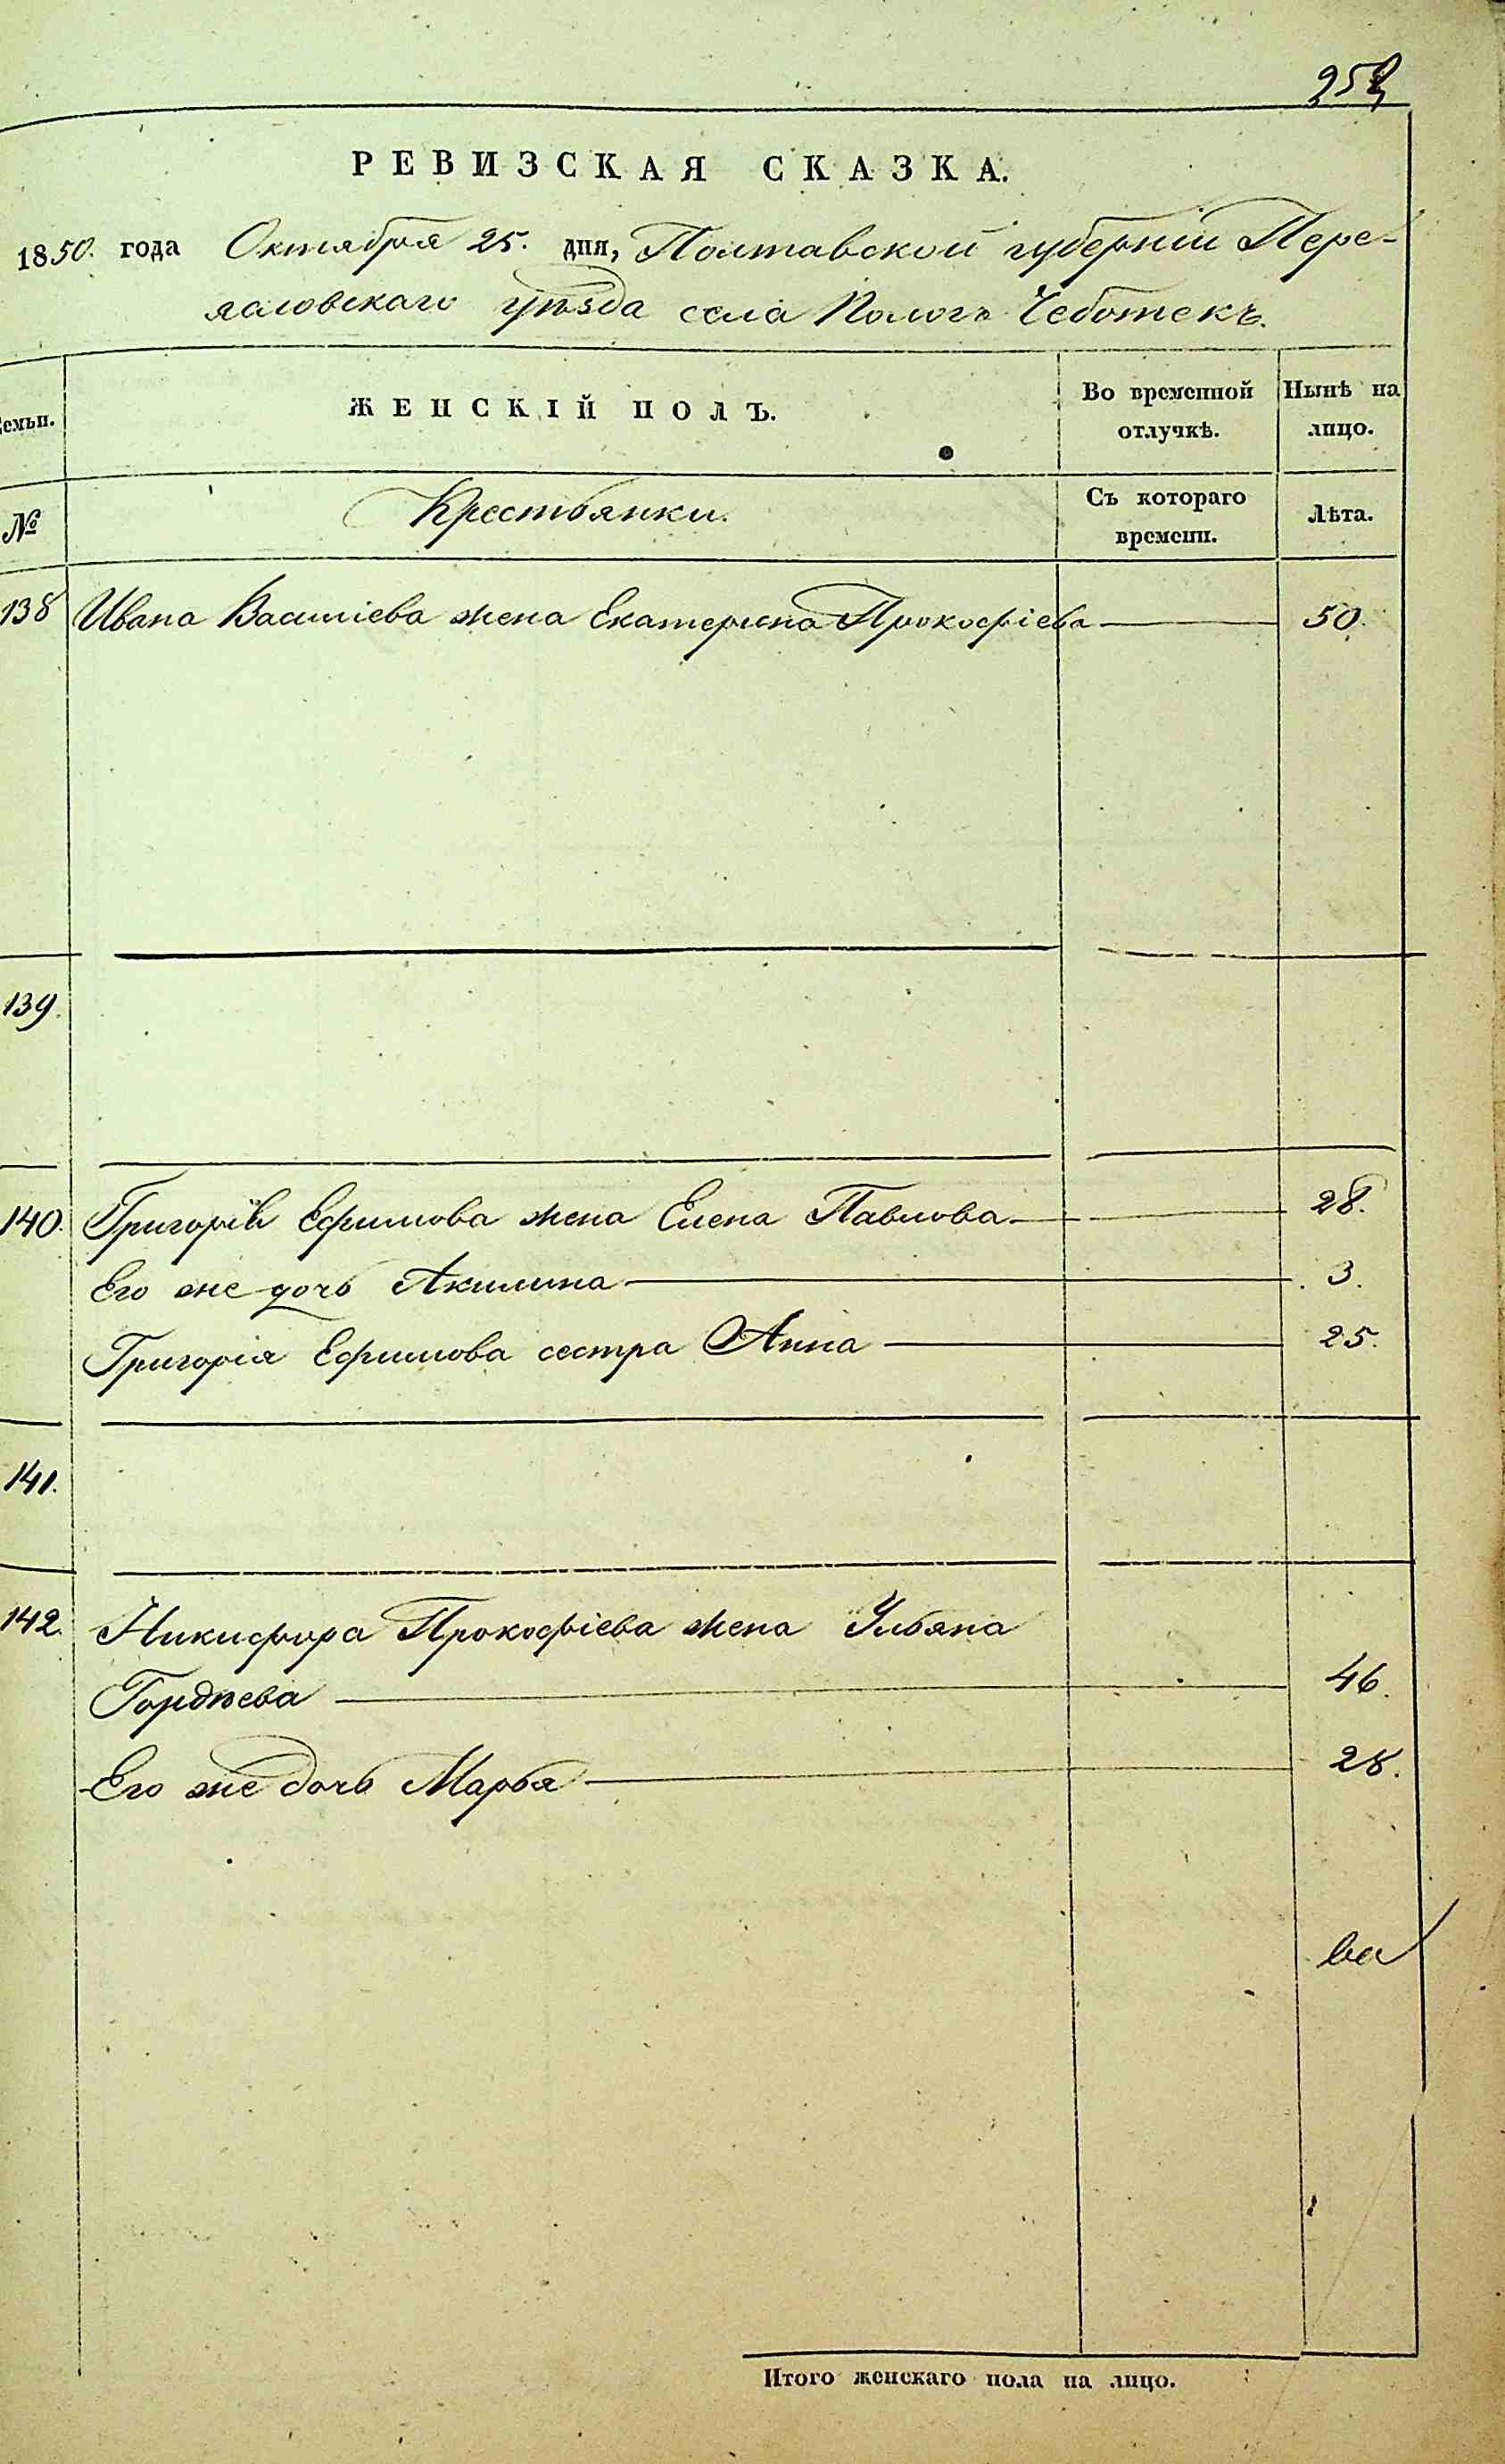 258
РЕВИЗСКАЯ СКАЗКА.
1850. года Октября 25. дня, Полтавской губерніи Пере-
ясловскаго уѣзда села Пологъ Чеботекъ.
Семьи. ЖЕНСКІЙ ПОЛЪ. Во временной отлучкѣ. Нынѣ на лицо.
№ Крестьянки. Съ котораго времени. Лѣта.
138 Ивана Василіева жена Екатерина Прокофіева 50.
139.
140. Григорія Ефимова жена Елена Павлова 28.
Его же дочь Акилина 3.
Григорія Ефимова сестра Анна 25.
141.
142. Никифора Прокофіева жена Ульяна
Гордѣева 46.
Его же дочь Марья 28.
ва
Итого женскаго пола на лицо.